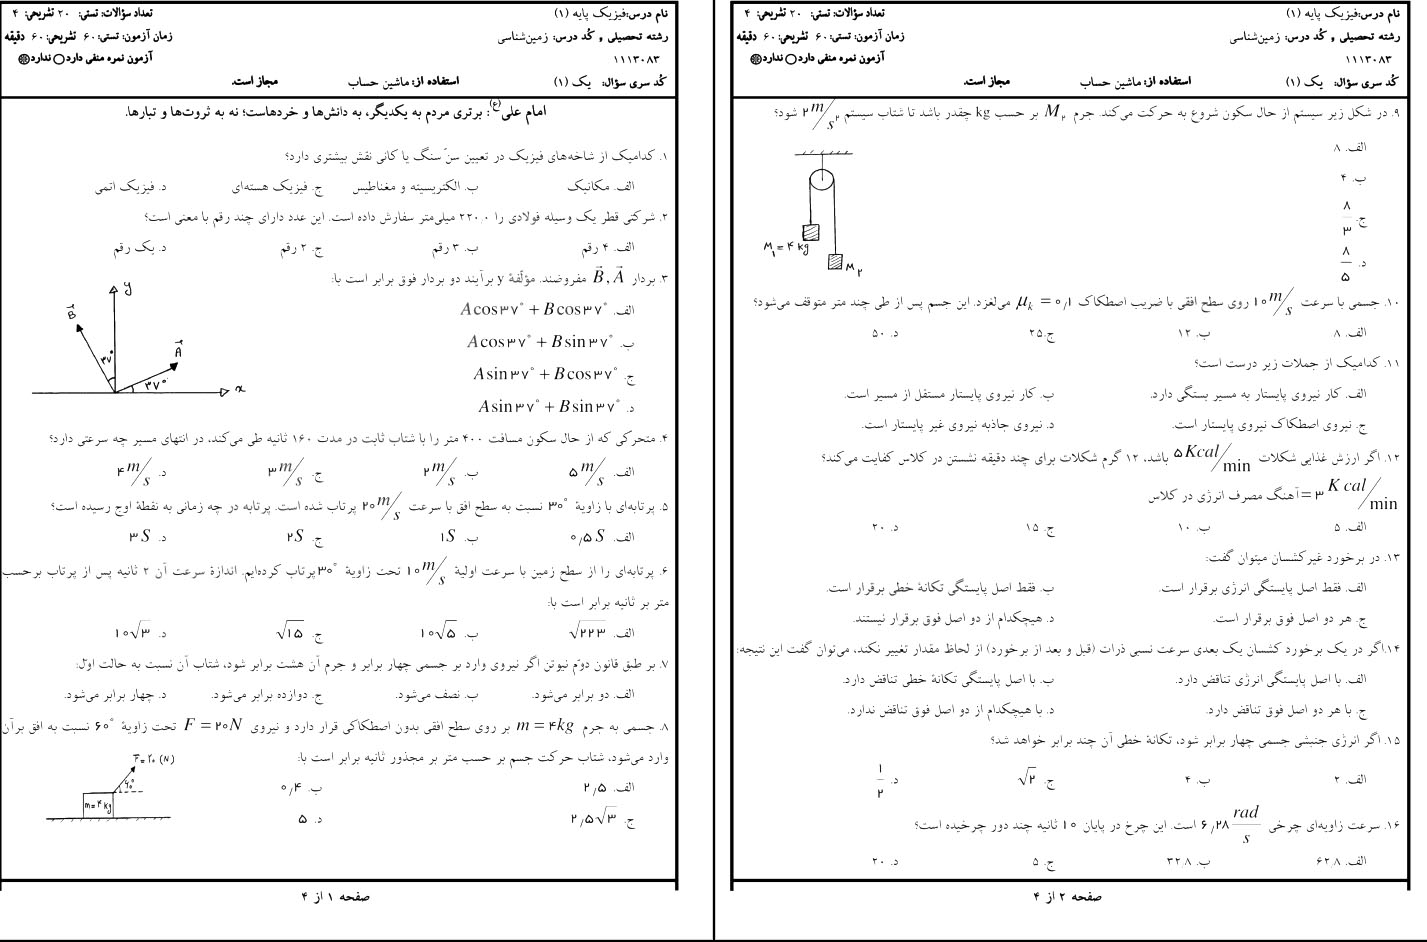 نام درس:فیزیک پایه (۱) تعداد سؤالات: تستی: ۲۰ تشریحی: ۴
رشته تحصیلی و کُد درس: زمین‌شناسی زمان آزمون: تستی: ۶۰ تشریحی: ۶۰ دقیقه
۱۱۱۳۰۸۳ آزمون نمره منفی دارد ندارد
کُد سری سؤال: یک (۱) استفاده از: ماشین حساب مجاز است.
امام علی(ع): برتری مردم به یکدیگر، به دانش‌ها و خردهاست؛ نه به ثروت‌ها و تبارها.
۱. کدامیک از شاخه‌های فیزیک در تعیین سنّ سنگ یا کانی نقش بیشتری دارد؟
الف. مکانیک ب. الکتریسیته و مغناطیس ج. فیزیک هسته‌ای د. فیزیک اتمی
۲. شرکتی قطر یک وسیله فولادی را ۲۲۰.۰ میلی‌متر سفارش داده است. این عدد دارای چند رقم با معنی است؟
الف. ۴ رقم ب. ۳ رقم ج. ۲ رقم د. یک رقم
۳. بردار A⃗ , B⃗ مفروضند. مؤلّفهٔ y برآیند دو بردار فوق برابر است با:
y
B⃗
A⃗
۳۷°
۳۷°
x
الف. A cos ۳۷° + B cos ۳۷°
ب. A cos ۳۷° + B sin ۳۷°
ج. A sin ۳۷° + B cos ۳۷°
د. A sin ۳۷° + B sin ۳۷°
۴. متحرکی که از حال سکون مسافت ۴۰۰ متر را با شتاب ثابت در مدت ۱۶۰ ثانیه طی می‌کند، در انتهای مسیر چه سرعتی دارد؟
الف. ۵ m/s ب. ۲ m/s ج. ۳ m/s د. ۴ m/s
۵. پرتابه‌ای با زاویهٔ ۳۰° نسبت به سطح افق با سرعت ۲۰ m/s پرتاب شده است. پرتابه در چه زمانی به نقطهٔ اوج رسیده است؟
الف. ۰/۵ S ب. ۱S ج. ۲S د. ۳S
۶. پرتابه‌ای را از سطح زمین با سرعت اولیهٔ ۱۰ m/s تحت زاویهٔ ۳۰° پرتاب کرده‌ایم. اندازهٔ سرعت آن ۲ ثانیه پس از پرتاب برحسب
متر بر ثانیه برابر است با:
الف. √۲۲۳ ب. ۱۰√۵ ج. √۱۵ د. ۱۰√۳
۷. بر طبق قانون دوّم نیوتن اگر نیروی وارد بر جسمی چهار برابر و جرم آن هشت برابر شود، شتاب آن نسبت به حالت اوّل:
الف. دو برابر می‌شود. ب. نصف می‌شود. ج. دوازده برابر می‌شود. د. چهار برابر می‌شود.
۸. جسمی به جرم m = ۴kg بر روی سطح افقی بدون اصطکاکی قرار دارد و نیروی F = ۲۰N تحت زاویهٔ ۶۰° نسبت به افق برآن
وارد می‌شود، شتاب حرکت جسم بر حسب متر بر مجذور ثانیه برابر است با:
F⃗=۲۰ (N)
۶۰°
m=۴ kg
الف. ۲/۵ ب. ۰/۴
ج. ۲/۵√۳ د. ۵
صفحه ۱ از ۴
نام درس:فیزیک پایه (۱) تعداد سؤالات: تستی: ۲۰ تشریحی: ۴
رشته تحصیلی و کُد درس: زمین‌شناسی زمان آزمون: تستی: ۶۰ تشریحی: ۶۰ دقیقه
۱۱۱۳۰۸۳ آزمون نمره منفی دارد ندارد
کُد سری سؤال: یک (۱) استفاده از: ماشین حساب مجاز است.
۹. در شکل زیر سیستم از حال سکون شروع به حرکت می‌کند. جرم M۲ بر حسب kg چقدر باشد تا شتاب سیستم ۲ m/s۲ شود؟
الف. ۸
ب. ۴
ج. ۸/۳
د. ۸/۵
M۱=۴ kg
M۲
۱۰. جسمی با سرعت ۱۰ m/s روی سطح افقی با ضریب اصطکاک μk = ۰/۱ می‌لغزد. این جسم پس از طی چند متر متوقف می‌شود؟
الف. ۸ ب. ۱۲ ج. ۲۵ د. ۵۰
۱۱. کدامیک از جملات زیر درست است؟
الف. کار نیروی پایستار به مسیر بستگی دارد. ب. کار نیروی پایستار مستقل از مسیر است.
ج. نیروی اصطکاک نیروی پایستار است. د. نیروی جاذبه نیروی غیر پایستار است.
۱۲. اگر ارزش غذایی شکلات ۵ Kcal/min باشد، ۱۲ گرم شکلات برای چند دقیقه نشستن در کلاس کفایت می‌کند؟
۳ K cal/min = آهنگ مصرف انرژی در کلاس
الف. ۵ ب. ۱۰ ج. ۱۵ د. ۲۰
۱۳. در برخورد غیرکشسان میتوان گفت:
الف. فقط اصل پایستگی انرژی برقرار است. ب. فقط اصل پایستگی تکانهٔ خطی برقرار است.
ج. هر دو اصل فوق برقرار است. د. هیچکدام از دو اصل فوق برقرار نیستند.
۱۴.اگر در یک برخورد کشسان یک بعدی سرعت نسبی ذرات (قبل و بعد از برخورد) از لحاظ مقدار تغییر نکند، می‌توان گفت این نتیجه:
الف. با اصل پایستگی انرژی تناقض دارد. ب. با اصل پایستگی تکانهٔ خطی تناقض دارد.
ج. با هر دو اصل فوق تناقض دارد. د. با هیچکدام از دو اصل فوق تناقض ندارد.
۱۵. اگر انرژی جنبشی جسمی چهار برابر شود، تکانهٔ خطی آن چند برابر خواهد شد؟
الف. ۲ ب. ۴ ج. √۲ د. ۱/۲
۱۶. سرعت زاویه‌ای چرخی ۶/۲۸ rad/s است. این چرخ در پایان ۱۰ ثانیه چند دور چرخیده است؟
الف. ۶۲.۸ ب. ۳۲.۸ ج. ۵ د. ۲۰
صفحه ۲ از ۴